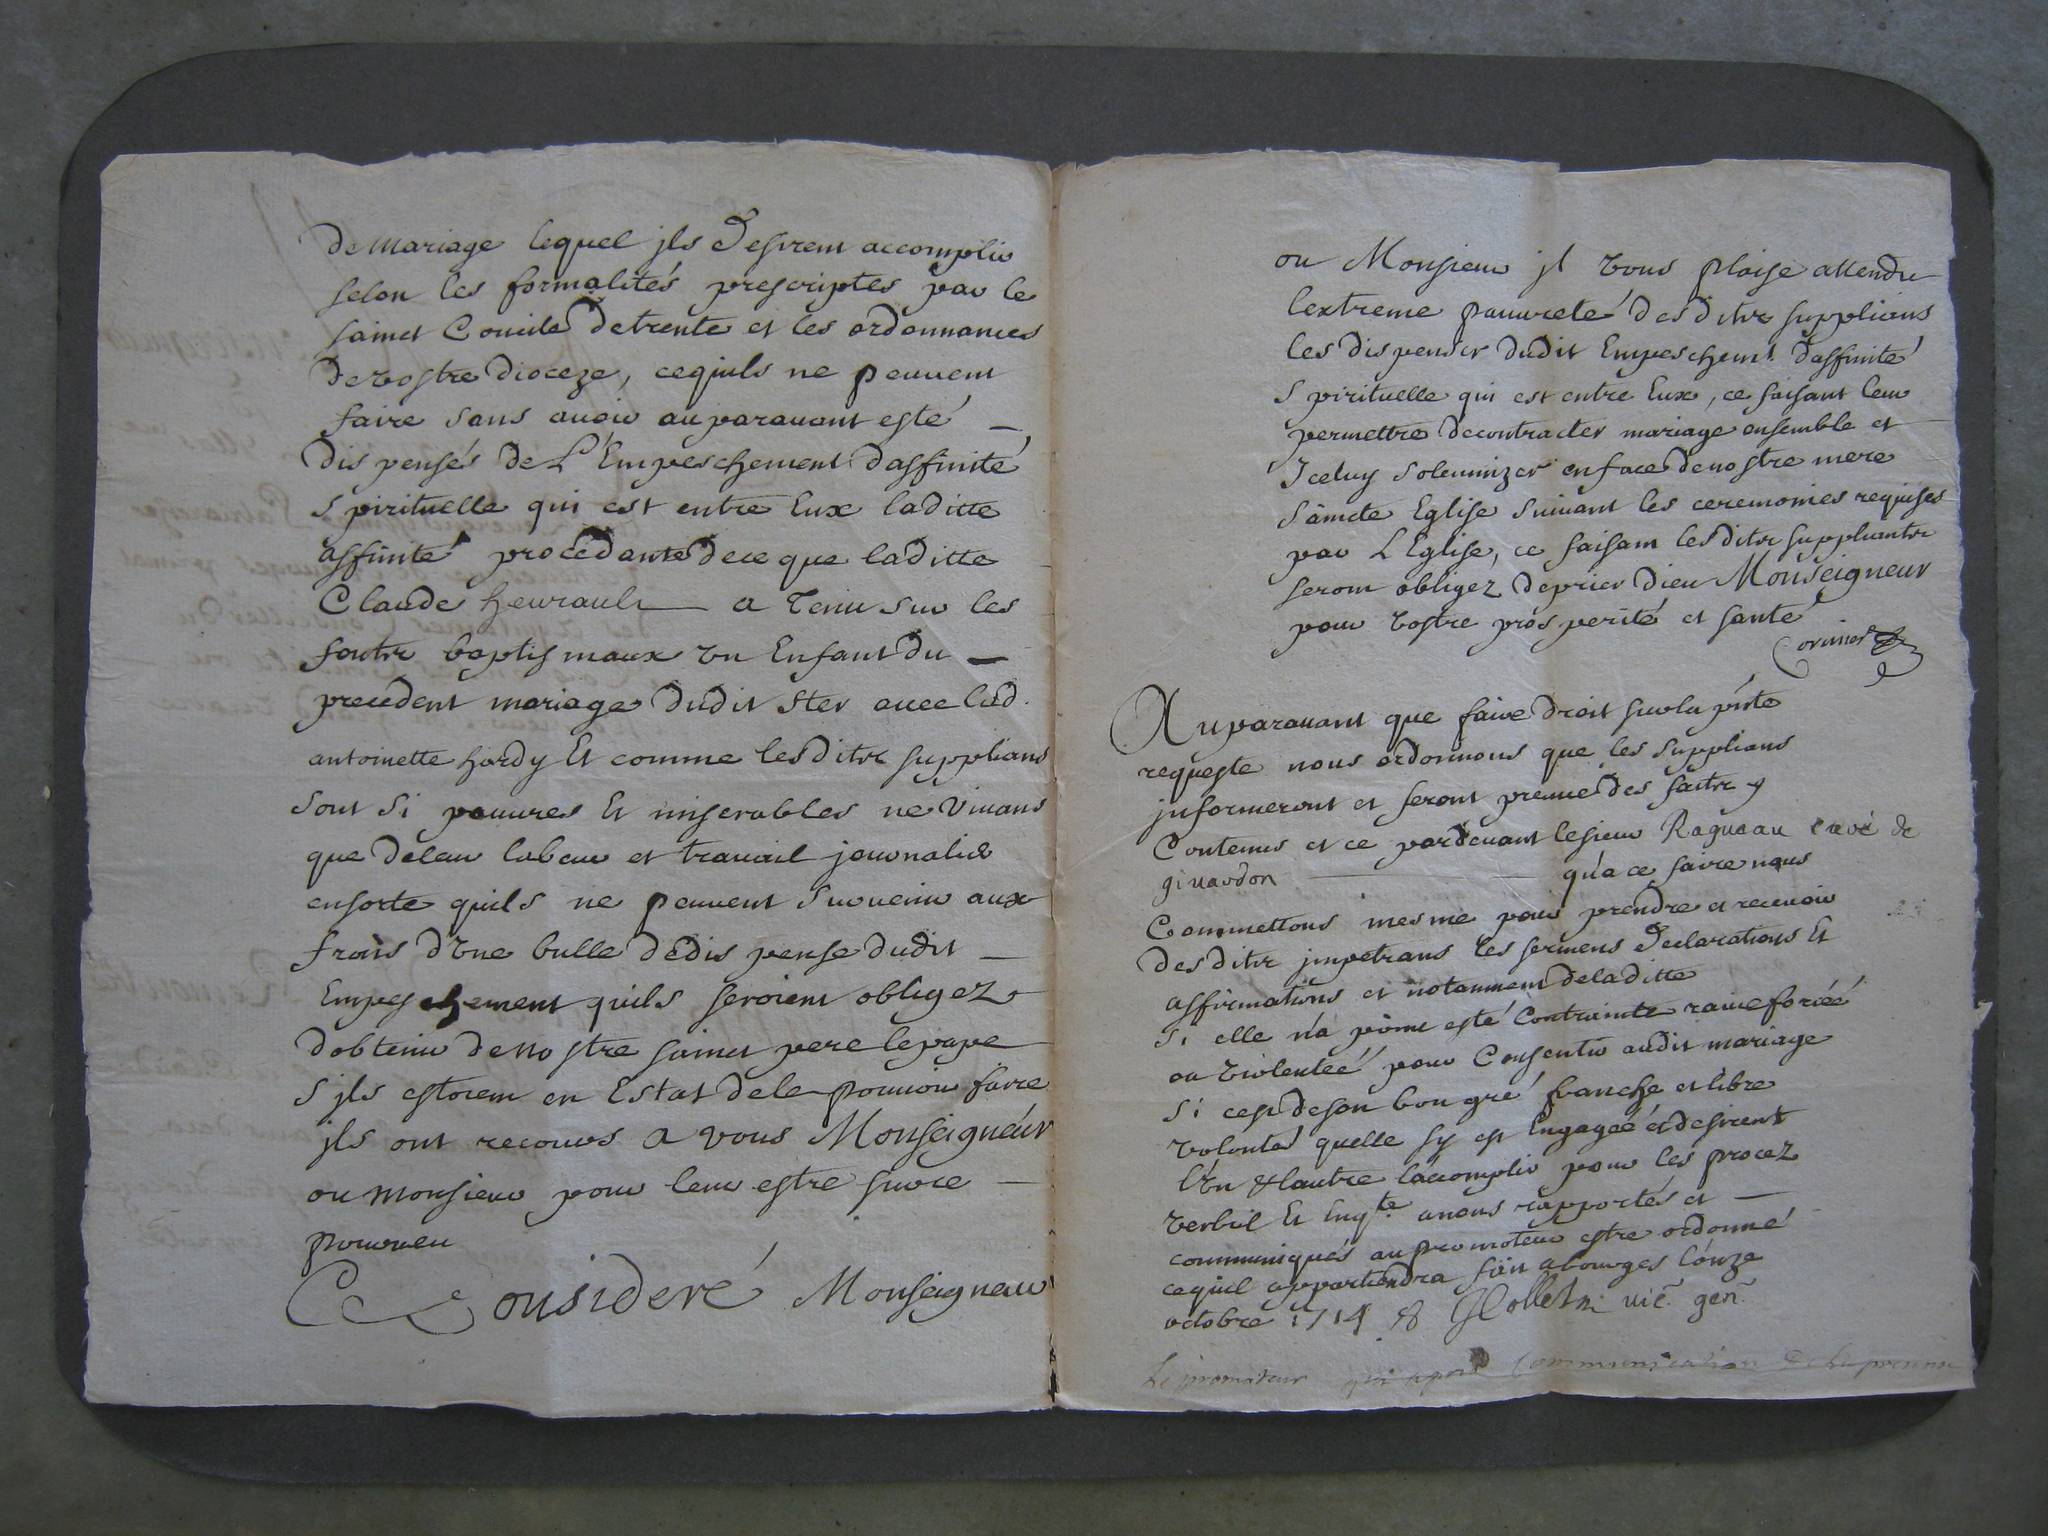 de mariage lequel jls desirent accomplir
selon les formalités prescriptes par le
sainct Concile de trente et les ordonnances
de vostre dioceze, ce quils ne peuuent
faire sans auoir auparauant esté
dispensés de L'Empeschement daffinité
spirituelle qui est entre Eux laditte
affinité procedante de ce que laditte
Claude heurault a tenu sur les
fonts baptismaux vn Enfant du
precedent mariage dudit ster auec lad.
antoinette hardy Et comme lesdits supplians
sont si pauures Et miserables ne viuans
que de leur labeur et trauail journalier
ensorte quils ne peuuent suruenir aux
frais d'vne bulle de dispense dudit
Empeschement quils seroient obligez
dobtenir de nostre sainct pere le pape
s'jls estoient en Estat de le pouuoir faire
jls ont recours a vous Monseigneur
ou monsieur pour leur estre surce
pourueu
Consideré Monseigneur
ou Monsieur jl vous plaise attendu
lextreme pauureté desdits supplians
les dispenser dudit Empeschemt. daffinité
spirituelle qui est entre Eux, ce faisant leur
permettre de contracter mariage ensemble et
Iceluy solemnizer en face de nostre mere
saincte Eglise suiuant les ceremonies requises
par L'Eglise, ce faisant lesdits suppliants
seront obligez de prier Dieu Monseigneur
pour vostre prosperité et santé
Auparauant que faire droit sur la pnte
requeste nous ordonnons que les supplians
jnformeront et feront preuue des faits y
Contenus et ce pardeuant le sieur Ragueau curé de
giuardon qu'a ce faire nous
Commettons mesme pour prendre et receuoir
desdits jmpetrans les sermens declarations Et
affirmations et notamment de laditte
si elle n'a point esté Contrainte rauie forcéé
ou violentéé pour Consentir audit mariage
si cest de son bon gré franche et libre
volonté quelle sy est Engagéé et desirent
l'vn & lautre laccomplir pour les procez
verbal Et Enqte. a nous rapportés et
communiqués au promoteur estre ordonné
ce quil appartiendra fait a bourges l'onze
octobre 1714
vic. gen.
Le promoteur qui a pris Communication de la presente